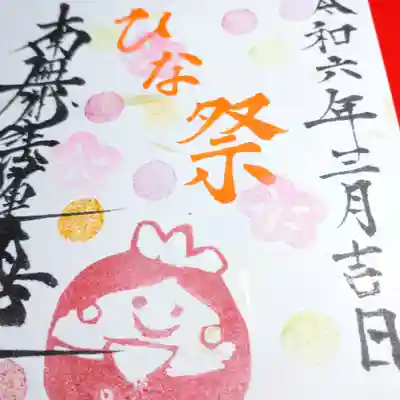 令和六年三月吉日
ひな
祭
南無妙法蓮華